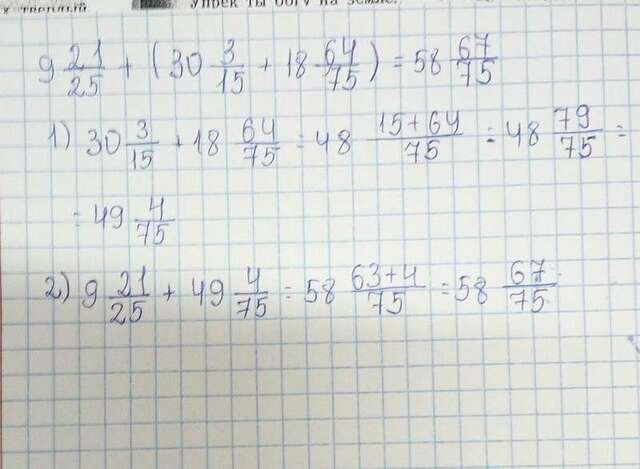 Упрек ты богу на земле.
9 21/25 + (30 3/15 + 18 64/75) = 58 67/75
1) 30 3/15 + 18 64/75 = 48 15+64/75 = 48 79/75 =
= 49 4/75
2) 9 21/25 + 49 4/75 = 58 63+4/75 = 58 67/75